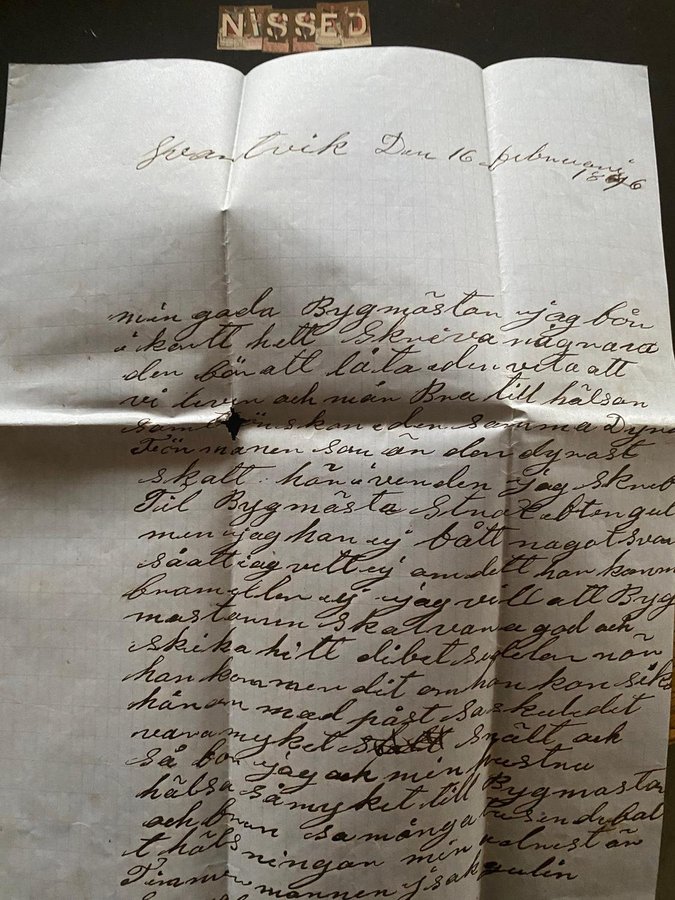 NiSSED
Svartvik Den 16 februari
18 6
min goda Bygmästar jag bör
i kort helt skriva någrara
den bör att låta eder veta att
vi lever och mår Bra till hälsan
samt önskar eder samma Dyra
Förmånen som är den dyrast
skatt här i verden jag skrev
Til Bygmästa strax ebter gul
men jag har ej bått nagot svar
såatt jag vett ej om dett har komm
bram eller ej jag vill att Byg
mastaren skal vara god och
skika hitt dibet när
han kommer dit om han kan sik
här om mad påst så skul det
vara myket snält och
så bör jag och min hustru
hälsa såmyket till Bygmastar
och så många tusindubal
t hälsningar min är
Timmermannen